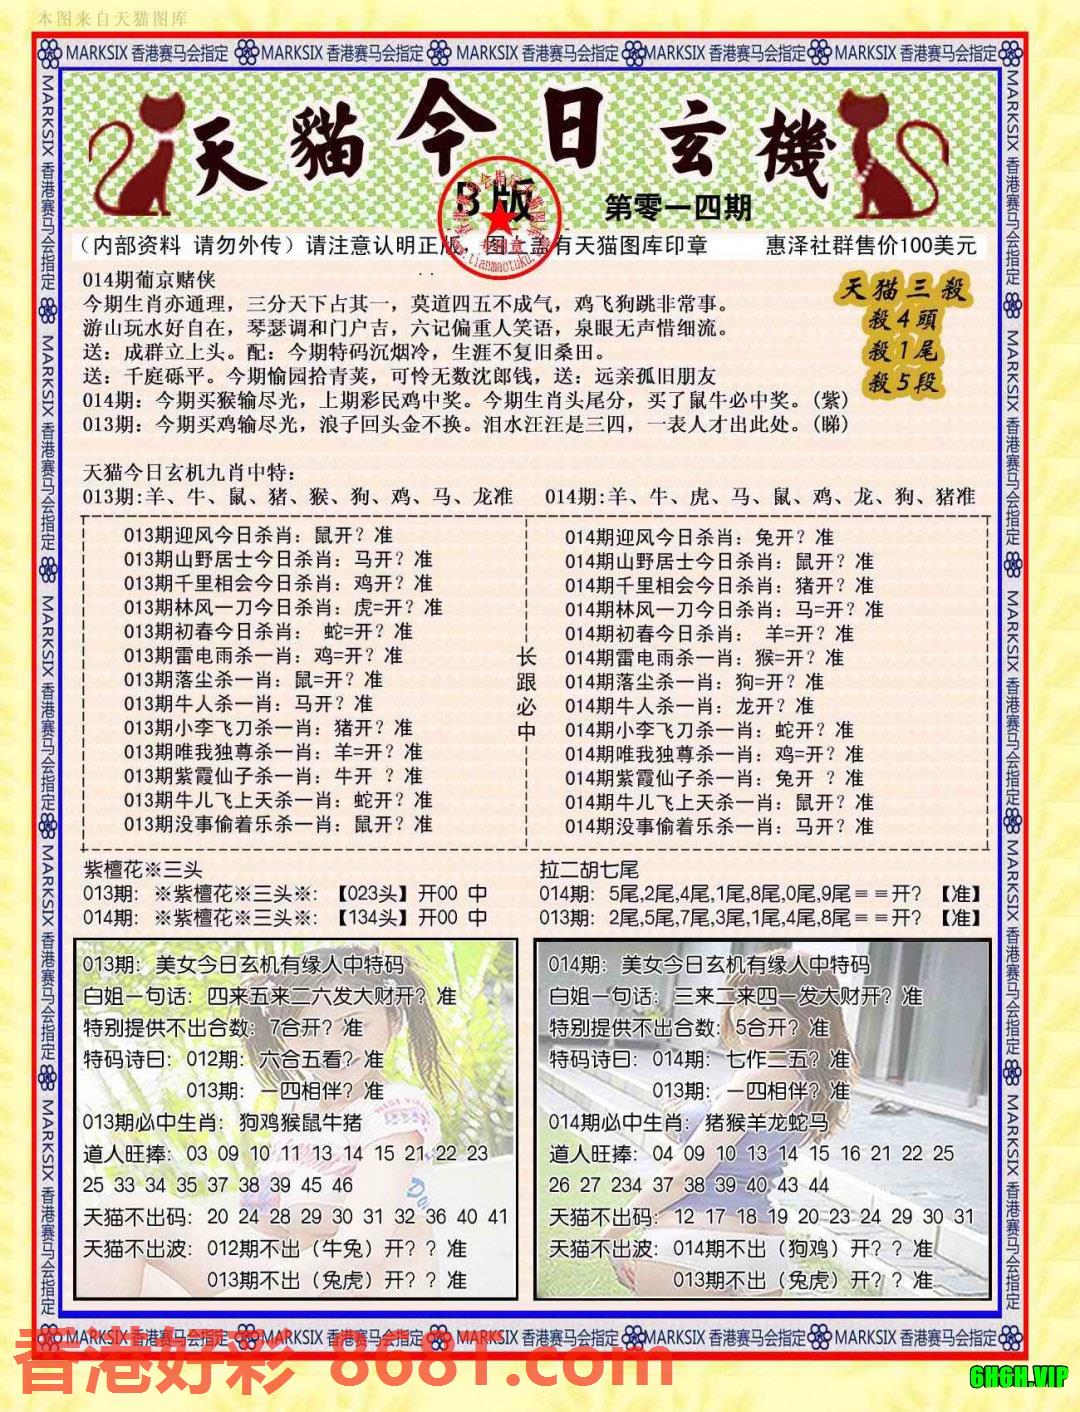 本图来自天猫图库
MARKSIX 香港赛马会指定 MARKSIX 香港赛马会指定 MARKSIX 香港赛马会指定 MARKSIX 香港赛马会指定 MARKSIX 香港赛马会指定
天貓今日玄機
B版
第零一四期
(内部资料 请勿外传) 请注意认明正版, 图上盖有天猫图库印章 惠泽社群售价100美元
014期葡京赌侠
今期生肖亦通理, 三分天下占其一, 莫道四五不成气, 鸡飞狗跳非常事。
游山玩水好自在, 琴瑟调和门户吉, 六记偏重人笑语, 泉眼无声惜细流。
送: 成群立上头。配: 今期特码沉烟冷, 生涯不复旧桑田。
送: 千庭砾平。今期愉园拾青荚, 可怜无数沈郎钱, 送: 远亲孤旧朋友
014期: 今期买猴输尽光, 上期彩民鸡中奖。今期生肖头尾分, 买了鼠牛必中奖。(紫)
013期: 今期买鸡输尽光, 浪子回头金不换。泪水汪汪是三四, 一表人才出此处。(睇)
天猫三殺
殺4頭
殺1尾
殺5段
天猫今日玄机九肖中特:
013期:羊、牛、鼠、猪、猴、狗、鸡、马、龙准 014期:羊、牛、虎、马、鼠、鸡、龙、狗、猪准
013期迎风今日杀肖: 鼠开? 准
013期山野居士今日杀肖: 马开? 准
013期千里相会今日杀肖: 鸡开? 准
013期林风一刀今日杀肖: 虎=开? 准
013期初春今日杀肖: 蛇=开? 准
013期雷电雨杀一肖: 鸡=开? 准
013期落尘杀一肖: 鼠=开? 准
013期牛人杀一肖: 马开? 准
013期小李飞刀杀一肖: 猪开? 准
013期唯我独尊杀一肖: 羊=开? 准
013期紫霞仙子杀一肖: 牛开 ? 准
013期牛儿飞上天杀一肖: 蛇开? 准
013期没事偷着乐杀一肖: 鼠开? 准
长跟必中
014期迎风今日杀肖: 兔开? 准
014期山野居士今日杀肖: 鼠开? 准
014期千里相会今日杀肖: 猪开? 准
014期林风一刀今日杀肖: 马=开? 准
014期初春今日杀肖: 羊=开? 准
014期雷电雨杀一肖: 猴=开? 准
014期落尘杀一肖: 狗=开? 准
014期牛人杀一肖: 龙开? 准
014期小李飞刀杀一肖: 蛇开? 准
014期唯我独尊杀一肖: 鸡=开? 准
014期紫霞仙子杀一肖: 兔开 ? 准
014期牛儿飞上天杀一肖: 鼠开? 准
014期没事偷着乐杀一肖: 马开? 准
紫檀花※三头
013期: ※紫檀花※三头※: 【023头】开00 中
014期: ※紫檀花※三头※: 【134头】开00 中
拉二胡七尾
014期: 5尾,2尾,4尾,1尾,8尾,0尾,9尾==开? 【准】
013期: 2尾,5尾,7尾,3尾,1尾,4尾,8尾==开? 【准】
013期: 美女今日玄机有缘人中特码
白姐一句话: 四来五来二六发大财开? 准
特别提供不出合数: 7合开? 准
特码诗曰: 012期: 六合五看? 准
013期: 一四相伴? 准
013期必中生肖: 狗鸡猴鼠牛猪
道人旺捧: 03 09 10 11 13 14 15 21 22 23
25 33 34 35 37 38 39 45 46
天猫不出码: 20 24 28 29 30 31 32 36 40 41
天猫不出波: 012期不出 (牛兔) 开? ? 准
013期不出 (兔虎) 开? ? 准
014期: 美女今日玄机有缘人中特码
白姐一句话: 三来二来四一发大财开? 准
特别提供不出合数: 5合开? 准
特码诗曰: 014期: 七作二五? 准
013期: 一四相伴? 准
014期必中生肖: 猪猴羊龙蛇马
道人旺捧: 04 09 10 13 14 15 16 21 22 25
26 27 234 37 38 39 40 43 44
天猫不出码: 12 17 18 19 20 23 24 29 30 31
天猫不出波: 014期不出 (狗鸡) 开? ? 准
013期不出 (兔虎) 开? ? 准
MARKSIX 香港赛马会指定 MARKSIX 香港赛马会指定 MARKSIX 香港赛马会指定 MARKSIX 香港赛马会指定 MARKSIX 香港赛马会指定
香港好彩 8681.com
6H6H.VIP